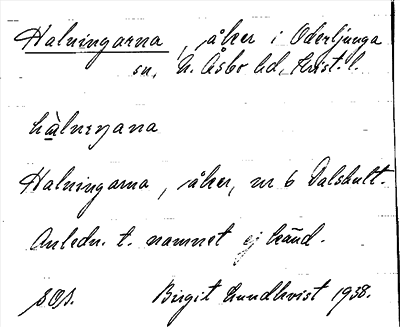 Halningarna, åker i Oderljunga
sn, N. Åsbo hd, Krist. l.
Halningarna, åker, nr 6 Dalshult.
Anledn. t. namnet ej känd.
Birgit Lundkvist 1938.